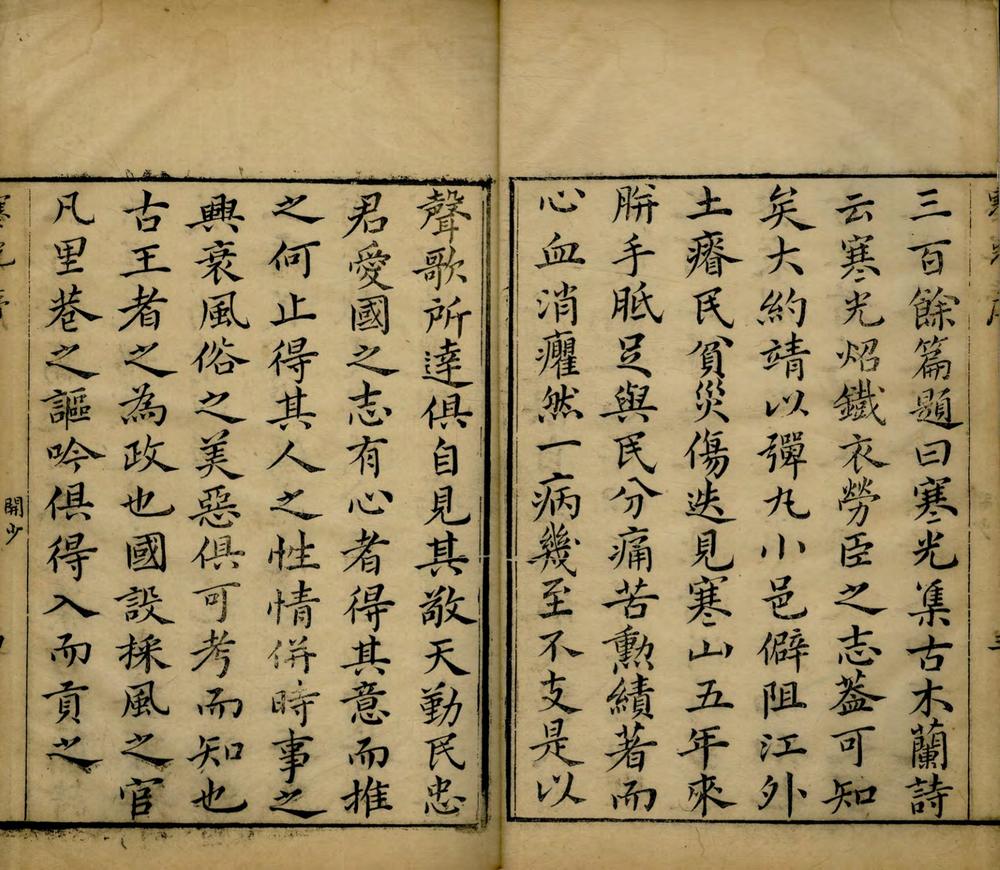 三百餘篇題曰寒光集古木蘭詩
云寒光炤鐵衣勞臣之志葢可知
矣大約靖以彈丸小邑僻阻江外
土瘠民貧災傷迭見寒山五年來
胼手胝足與民分痛苦勲績著而
心血消癯然一病幾至不支是以
聲歌所達俱自見其敬天勤民忠
君愛國之志有心者得其意而推
之何止得其人之性情併時事之
興衰風俗之美惡俱可考而知也
古王者之為政也國設採風之官
凡里巷之謳吟俱得入而貢之
開少